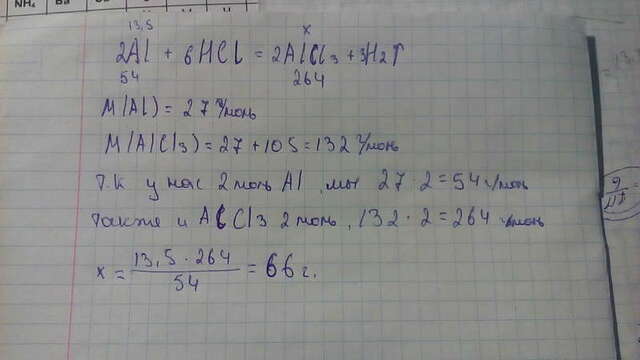 NH₄ Ba
13,5 x
2Al + 6HCl = 2AlCl₃ + 3H₂↑
54 264
M(Al) = 27 г/моль
M(AlCl₃) = 27 + 105 = 132 г/моль
Т.К у нас 2 моль Al, мы 27 · 2 = 54 г/моль
также и AlCl₃ 2 моль, 132 · 2 = 264 г/моль
x = 13,5 · 264 / 54 = 66 г.